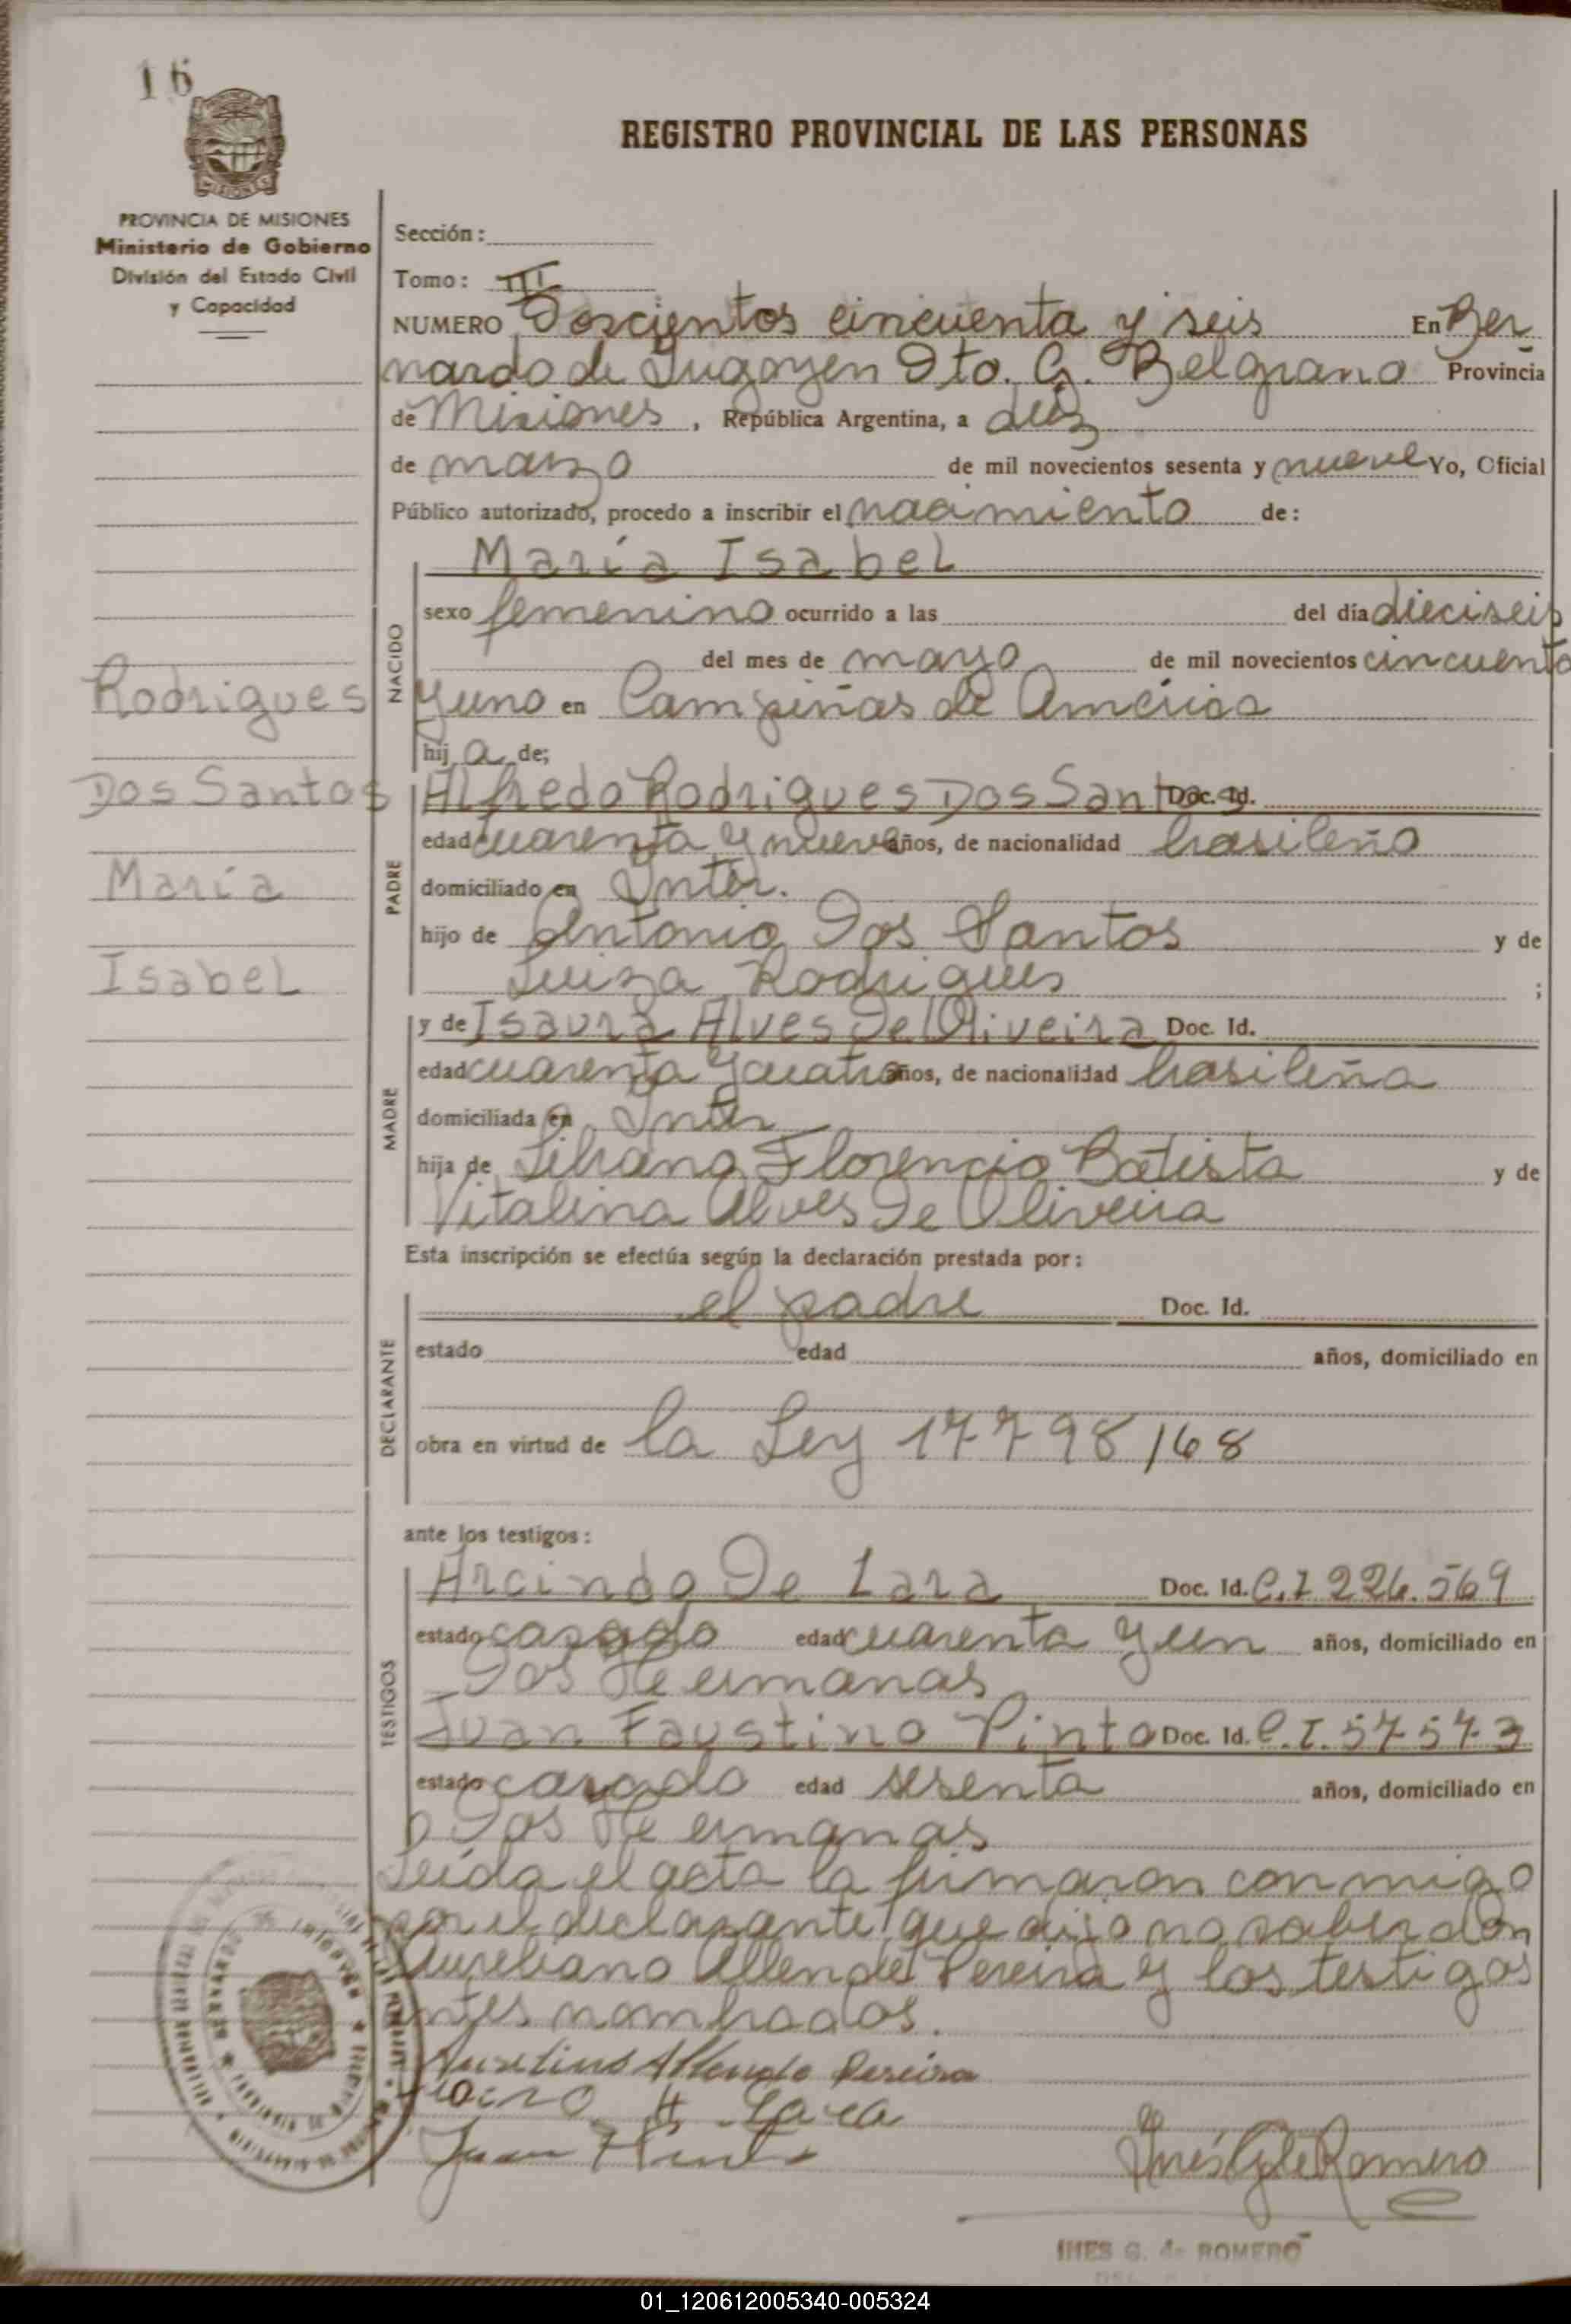 16
REGISTRO PROVINCIAL DE LAS PERSONAS
PROVINCIA DE MISIONES
Ministerio de Gobierno
División del Estado Civil
y Capacidad
Sección:
Tomo: III
NUMERO Doscientos cincuenta y seis En Ber
nardo de Irigoyen Dto. G. Belgrano Provincia
de Misiones, República Argentina, a diez
de marzo de mil novecientos sesenta y nueve Yo, Oficial
Público autorizado, procedo a inscribir el nacimiento de:
María Isabel
NACIDO
sexo femenino ocurrido a las del día dieciseis
del mes de mayo de mil novecientos cincuenta
Rodrigues
y uno en Campiñas de América
hij a de;
Dos Santos
PADRE
Alfredo Rodrigues Dos Santos Doc. Id.
edad cuarenta y nueve años, de nacionalidad brasileño
María
domiciliado en Inter.
hijo de Antonio Dos Santos y de
Isabel
Luiza Rodrigues ;
MADRE
y de Isaura Alves De Oliveira Doc. Id.
edad cuarenta y cuatro años, de nacionalidad brasileña
domiciliada en Inter
hija de Florencio Batista y de
Vitalina Alves De Oliveira
Esta inscripción se efectúa según la declaración prestada por:
DECLARANTE
el padre Doc. Id.
estado edad años, domiciliado en
obra en virtud de la Ley 17798/68
ante los testigos:
TESTIGOS
Arcindo De Lara Doc. Id. C.I 226.569
estado casado edad cuarenta y un años, domiciliado en
Dos Hermanas
Juan Faustino Pinto Doc. Id. C.I. 57573
estado casado edad sesenta años, domiciliado en
Dos Hermanas
Leída el acta la firmaron conmigo
por el declarante que dijo no saber don
Aureliano Allende Pereira y los testigos
antes nombrados.
Allende Pereira
Lara
Juan
Inés G de Romero
INES G. de ROMERO
01_120612005340-005324